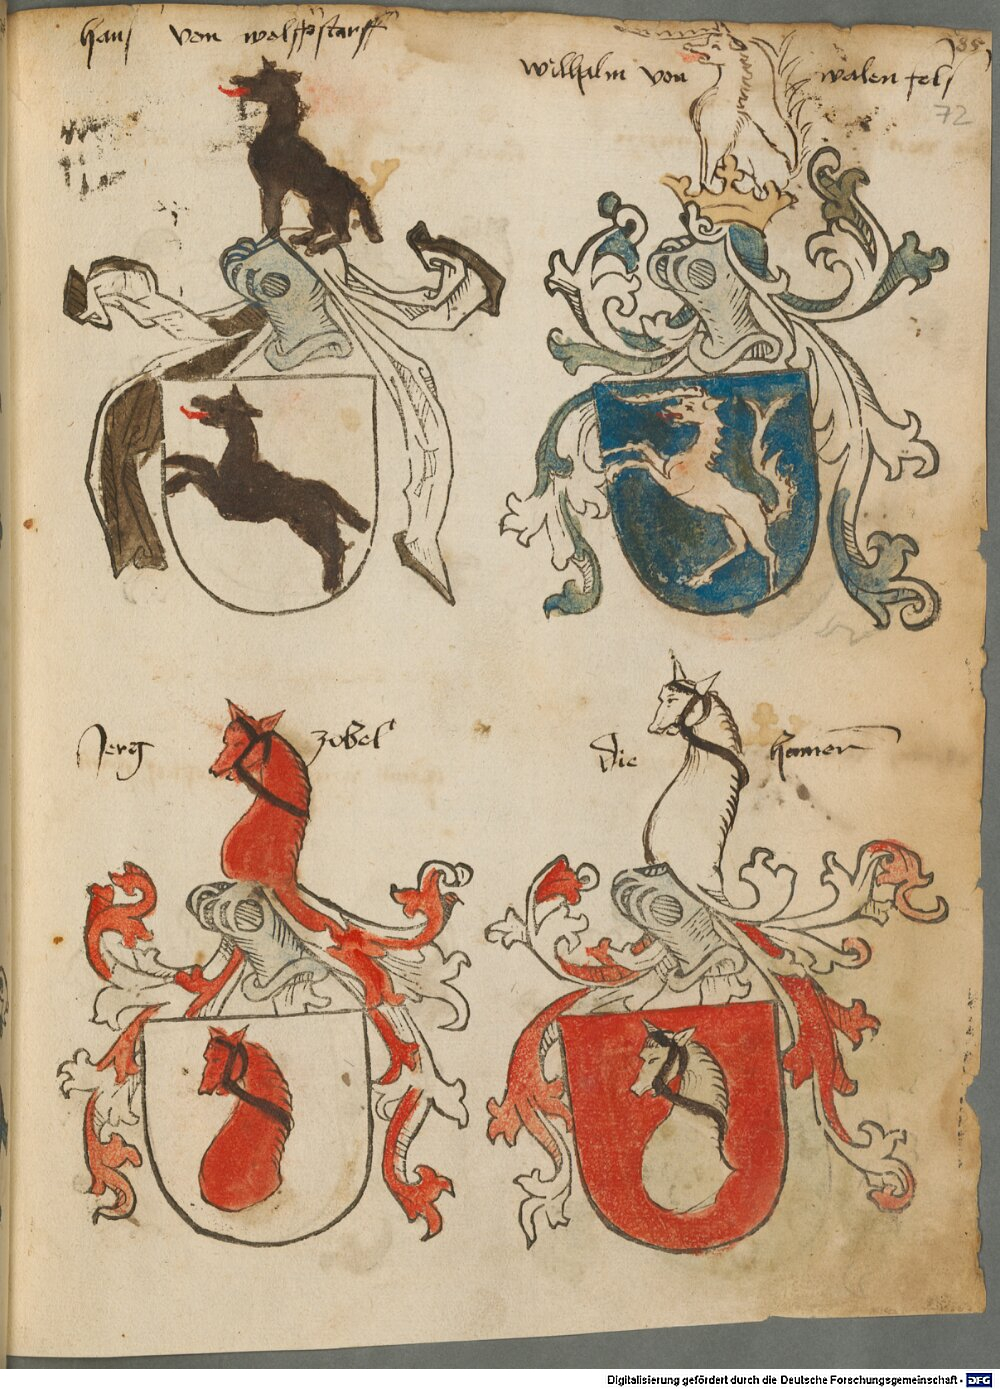 hans von wolffstarff
wilhalm von walen fels
85
72
Jerg zobel
die hamer
Digitalisierung gefördert durch die Deutsche Forschungsgemeinschaft - DFG